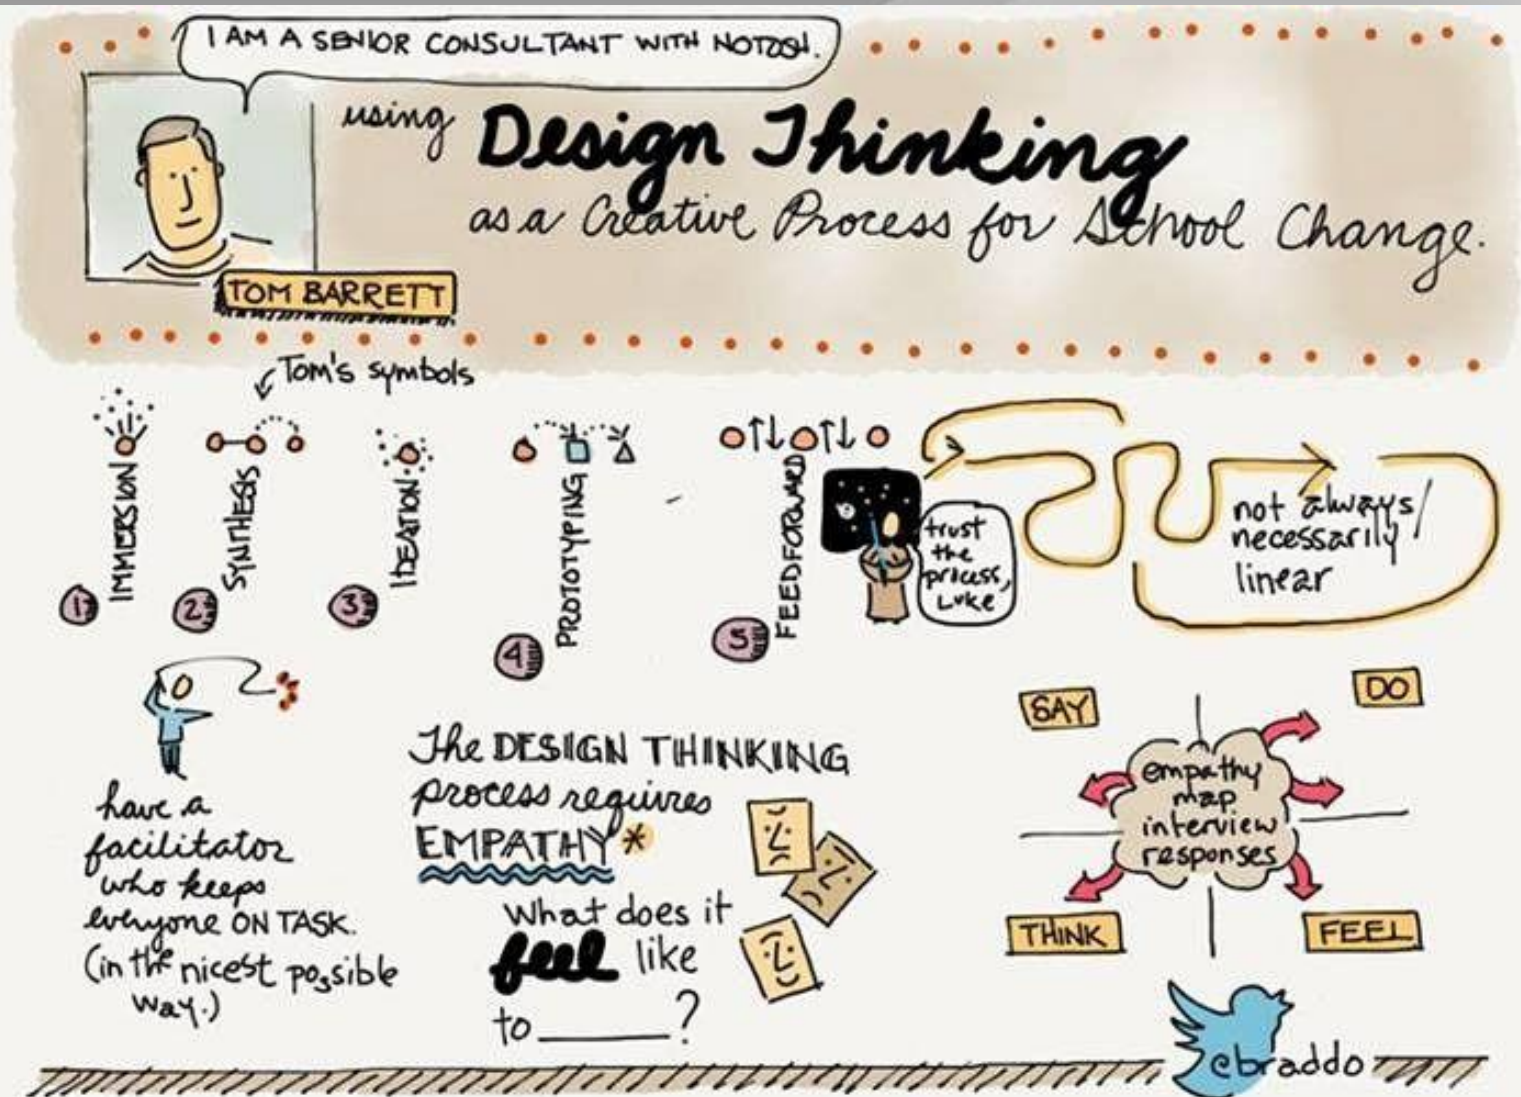 I AM A SENIOR CONSULTANT WITH NOTOSH.
using Design Thinking
as a Creative Process for School Change.
TOM BARRETT
Tom's symbols
1 IMMERSION
2 SYNTHESIS
3 IDEATION
4 PROTOTYPING
5 FEEDFORWARD
trust
the
process,
Luke
not always/
necessarily
linear
have a
facilitator
who keeps
everyone ON TASK.
(in the nicest possible
way.)
The DESIGN THINKING
process requires
EMPATHY*
What does it
feel like
to ______?
SAY
DO
empathy
map
interview
responses
THINK
FEEL
@braddo